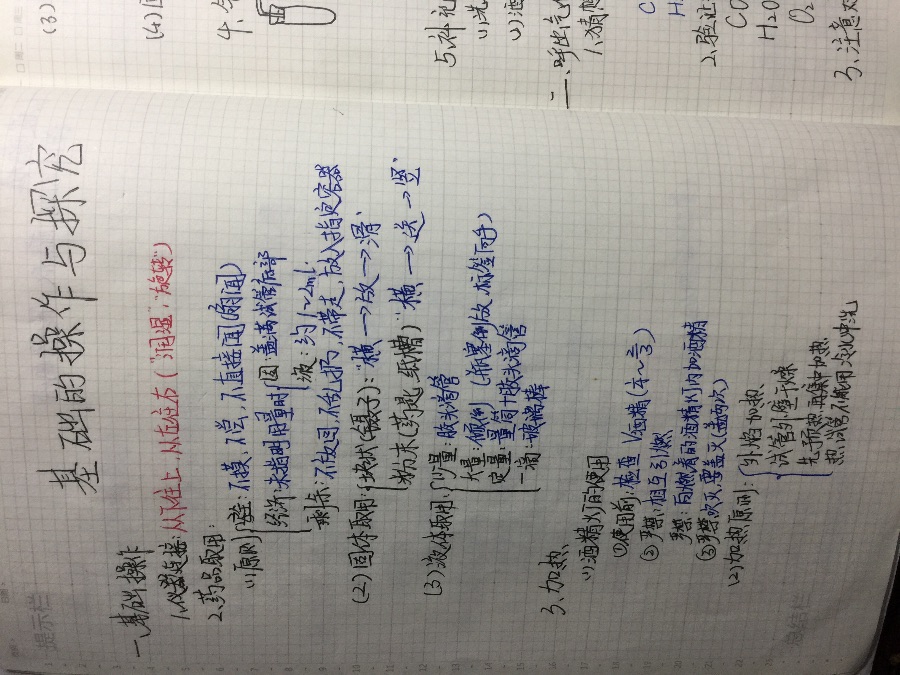 基础的操作与探究
一、基础操作
1.仪器连接:从下往上,从左往右("润湿","旋转")
2.药品取用:
(1)原则
安全:不摸,不尝,不直接闻(扇闻)
经济:未指明用量时
固:盖满试管底部
液:约1~2ml.
剩余:不放回,不乱扔,不带走,放入指定容器
(2)固体取用:
块状(镊子):"横→放→滑、
粉末(药匙/纸槽)"横→送→竖、
(3)液体取用,
少量:胶头滴管
大量:倾倒(瓶塞倒放,标签向手)
定量:量筒+胶头滴管
一滴:玻璃棒
3、加热、
(1)酒精灯的使用
①使用前:检查 酒精(1/4~2/3)
②严禁:相互引燃
严禁:向燃着的酒精灯内加酒精
③严禁吹灭,要盖灭(盖两次)
(2)加热原则:
外焰加热、
试管外壁干燥
先预热,再集中加热
热试管不能用冷水冲洗
提示栏
总结栏
(3)
(4)
4、
5、补充
(1)洗
(2)酒
二、呼出气体
1、猜想
C
H
2、验证
CO
H₂O
O₂
3、注意